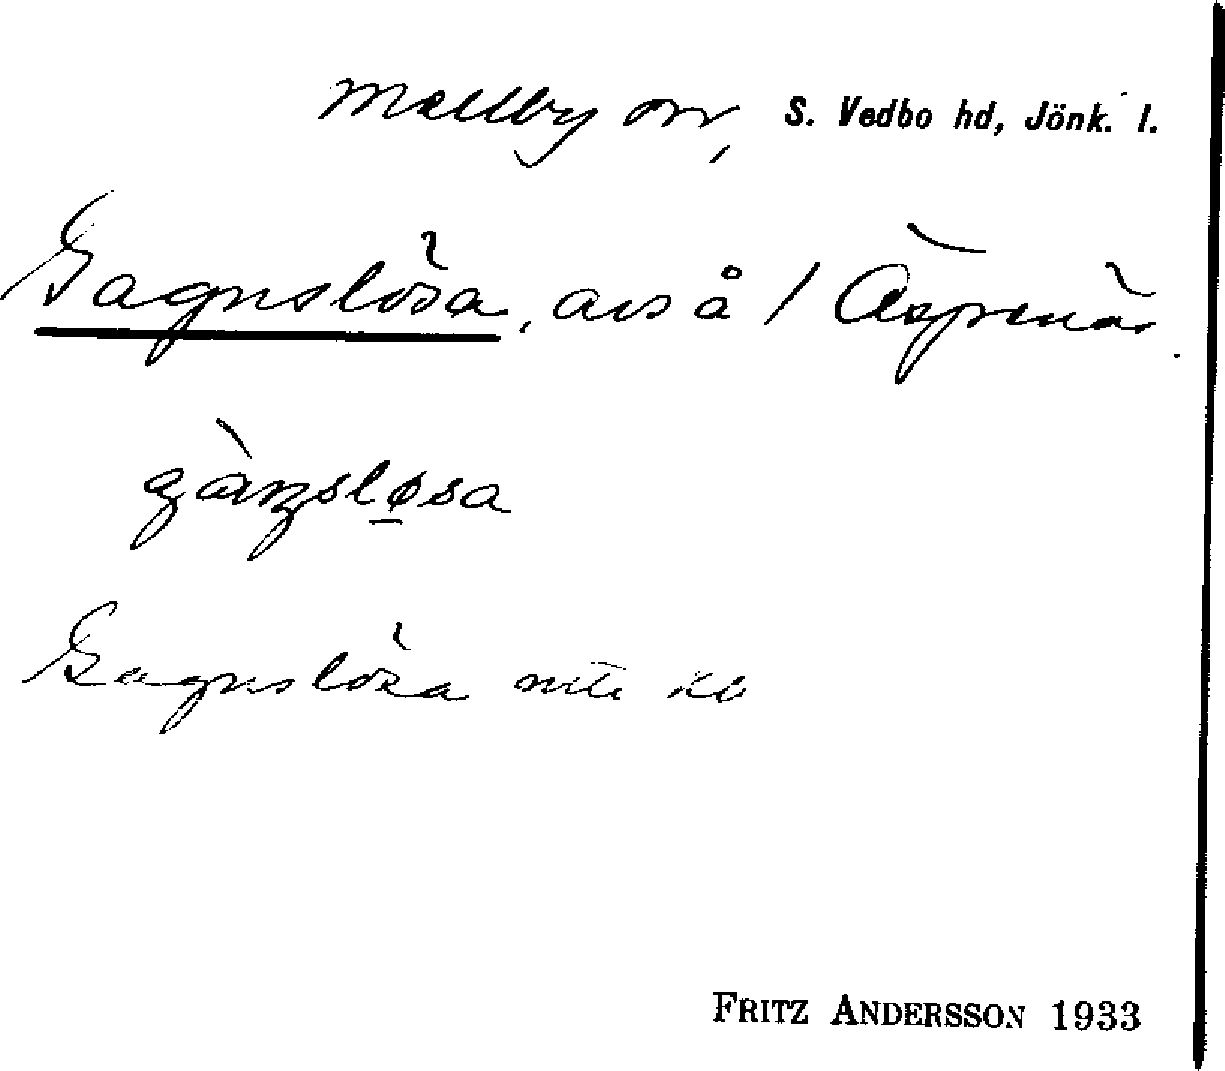 Mellby sn, S. Vedbo hd, Jönk. l.
Gagnslösa, avs å / Äspenäs.
gàŋsløsa
Gagnslösa
FRITZ ANDERSSON 1933